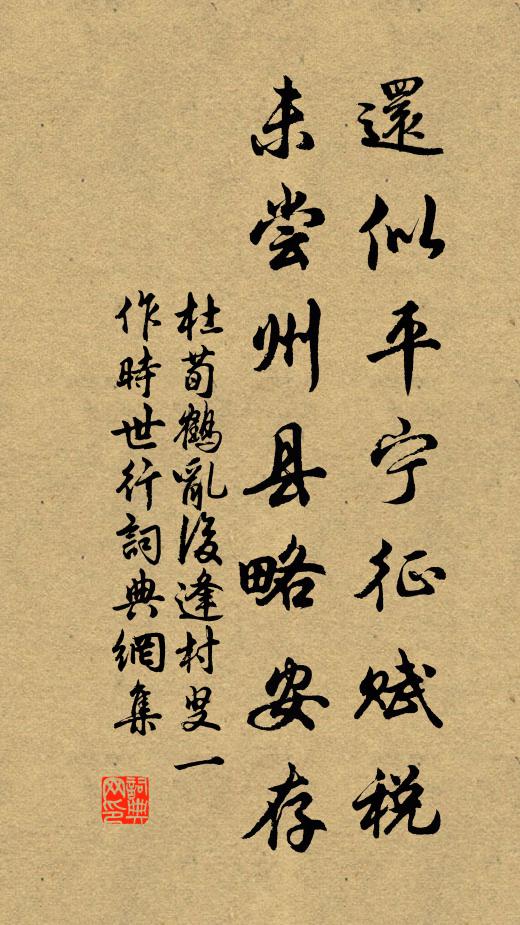 還似平宁征赋税
未尝州县略安存
杜荀鶴亂後逢村叟一
作時世行詞典網集
詞典
网印